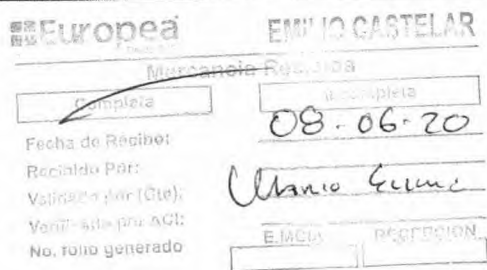 Europea EMILIO CASTELAR
Mercancia Recibida
Completa Incompleta
Fecha de Recibo: 08-06-20
Recibido Por: Mario
Validado por (Gte):
Verificado por ACI:
No. folio generado E.MCIA RECEPCION